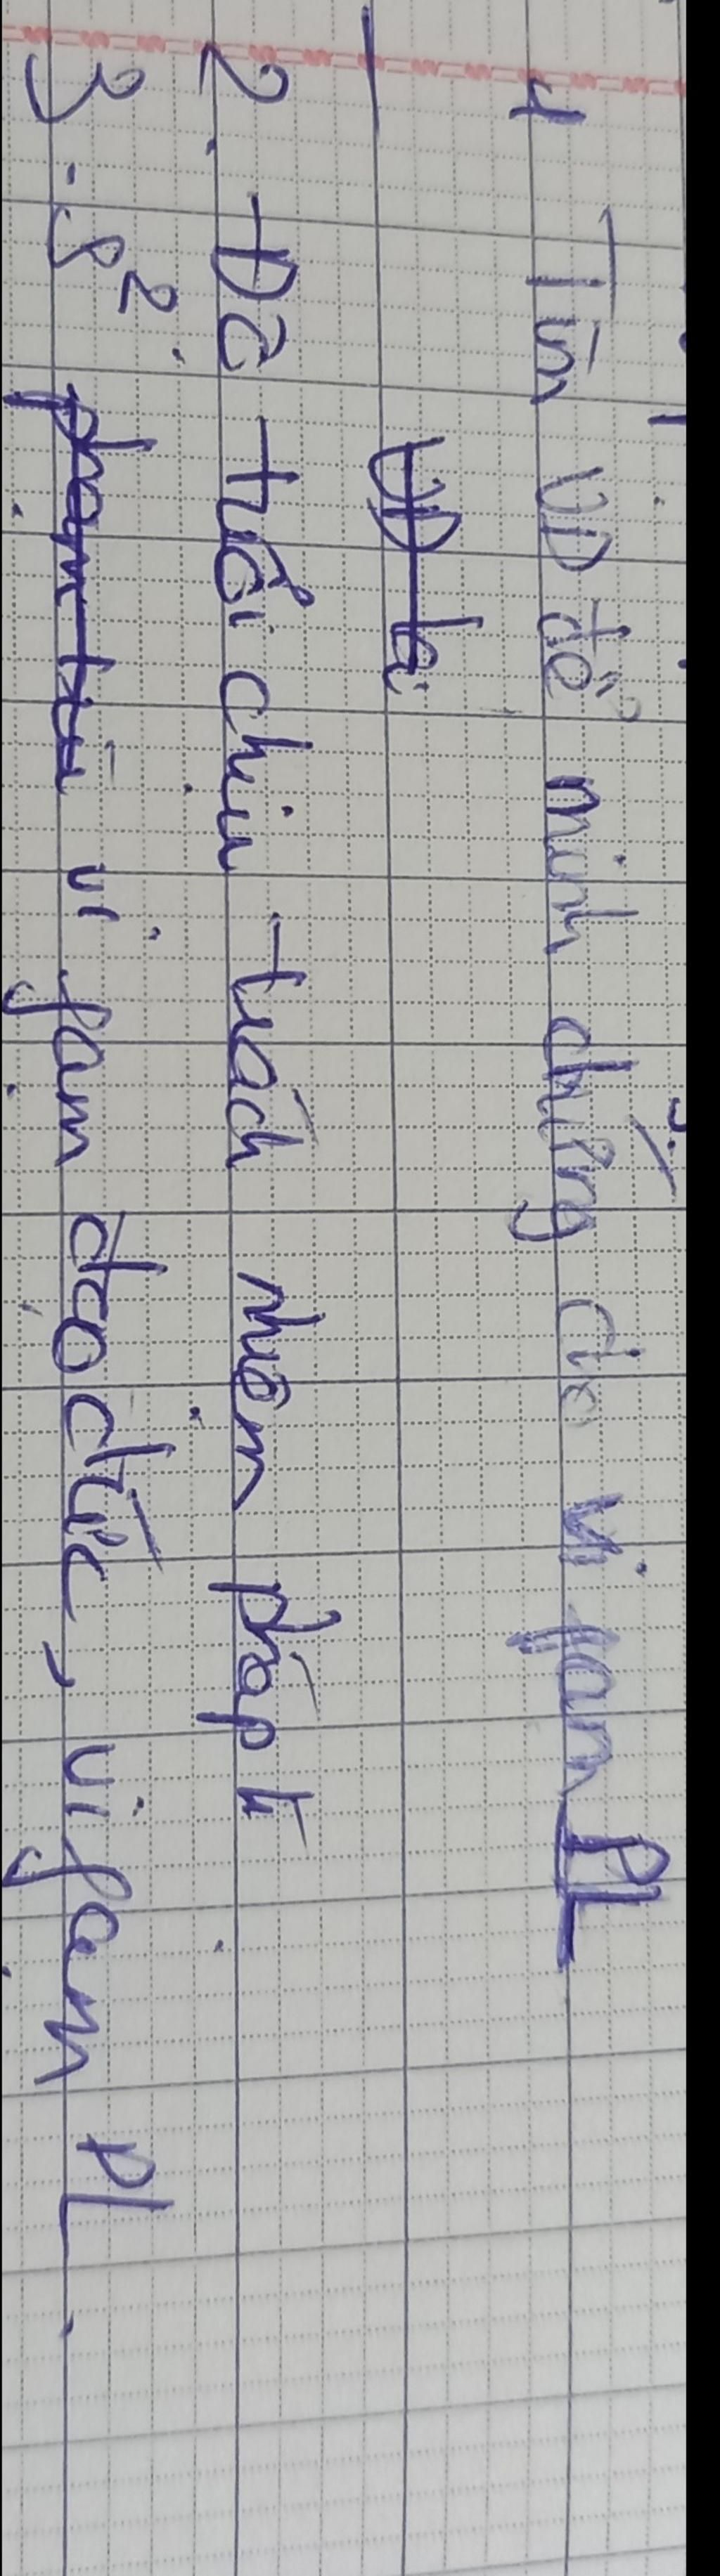 1 Tìm VD để minh chứng cho vi fạm PL
2. Độ tuổi chịu trách nhiệm pháp lí
3. S² vi fạm đạo đức, vi fạm PL.